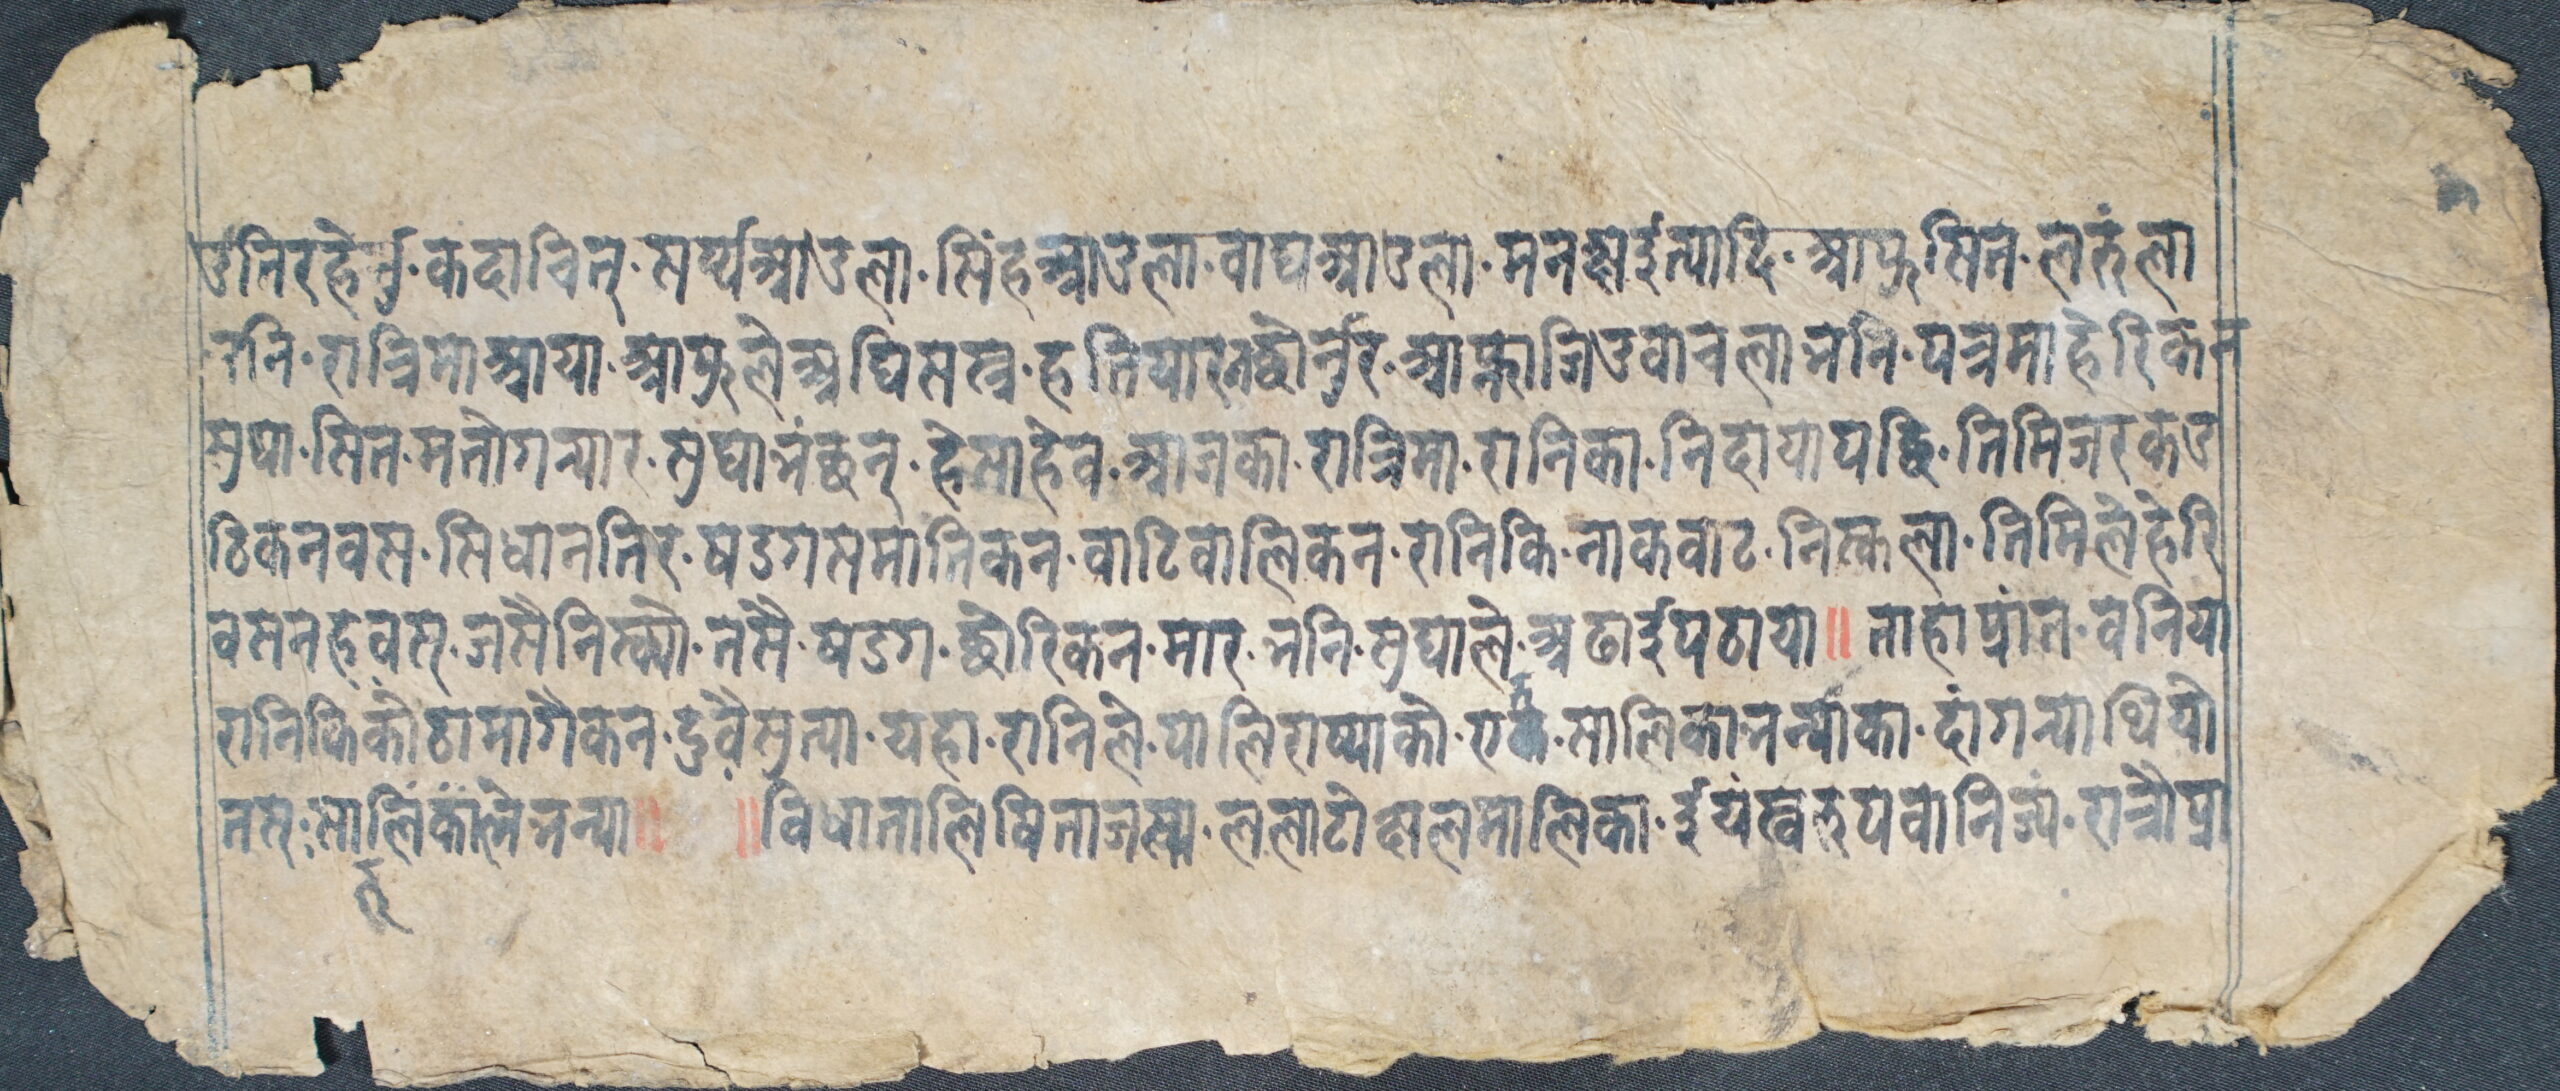 उनिरहेर्नु·कदाचित्·सर्प्पआउला·सिंहआउला·वाघआउला·मनछाइत्यादि·आफुसित·लरुंला
भनि·रात्रिमाआया·आफुलेअघिसस्त्र·हतियारछोर्नुर·आफ्नाजिउवाचलाभनि·पत्रमाहेरिकन
सुघा·सित·मतोगन्यार·सुघाभंछन्·हेसाहेव·आजका·रात्रिमा·रानिका·निदायापछि·तिमिजरकउ
ठिकनवस·सिधाननिर·षडगसमातिकन·वाटिवालिकन·रानिकि·नाकवाट·निस्कला·तिमिलेहेरि
वसनहवस्·जसैनिस्क्यो·तसै·षडग·छोरिकन·मार·भनि·सुघाले·अढाइपठाया॥ ताहाप्रांत·वनिया
रानिकिकोठामागैकन·दुवैसुत्या·यहा·रानिले·पालिराष्याको·एक·सालिकाभन्याका·दांगन्याथियो
तस्·सालिंकांलेभन्या॥ ॥विधातालिषिताजस्य·ललाटोक्षलमालिका·इयंस्वरुपवानिज्यं·रात्रौप्रा
रु